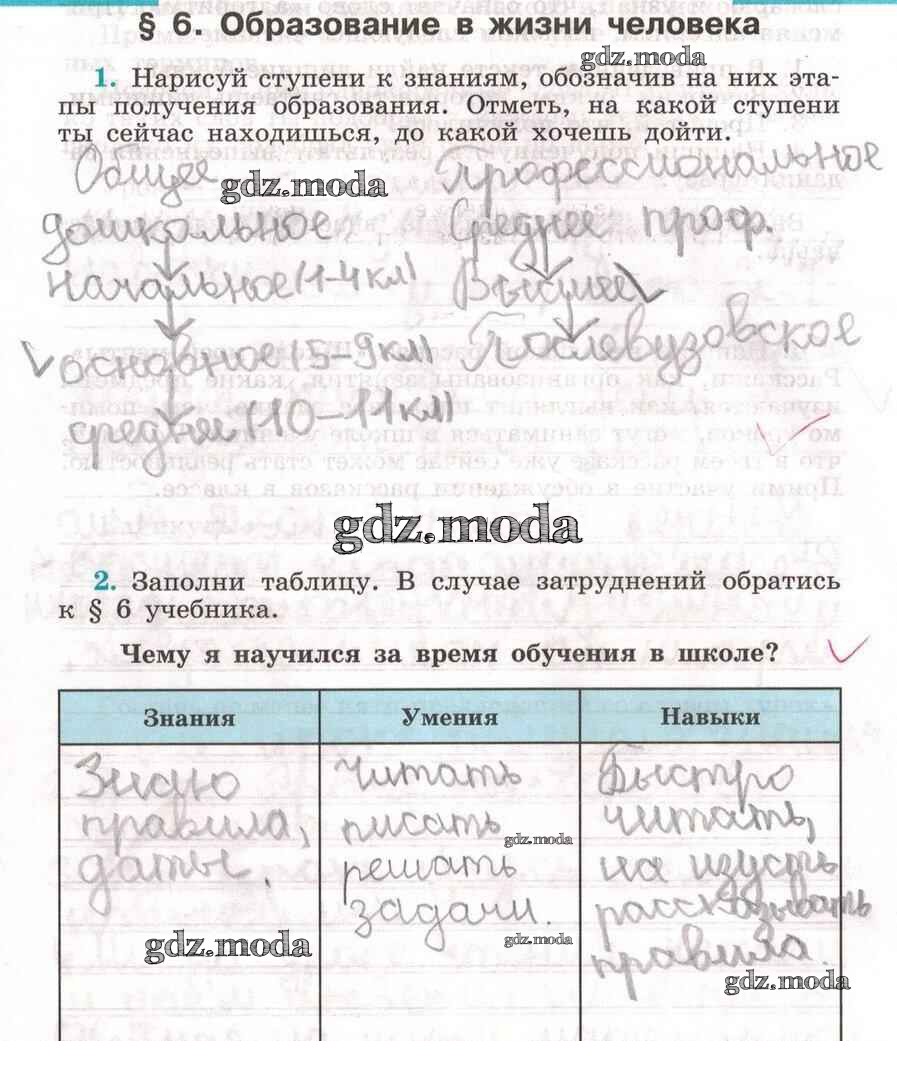 § 6. Образование в жизни человека
gdz.moda
1. Нарисуй ступени к знаниям, обозначив на них эта-
пы получения образования. Отметь, на какой ступени
ты сейчас находишься, до какой хочешь дойти.
Общее Профессиональное
gdz.moda
дошкольное Среднее проф.
начальное (1-4кл) Высшее
основное (5-9кл) Послевузовское
среднее (10-11кл)
gdz.moda
2. Заполни таблицу. В случае затруднений обратись
к § 6 учебника.
Чему я научился за время обучения в школе?
Знания Умения Навыки
Знаю Читать Быстро
правила, писать читать,
gdz.moda
даты. решать на изусть
задачи. рассказывать
gdz.moda gdz.moda
правила.
gdz.moda